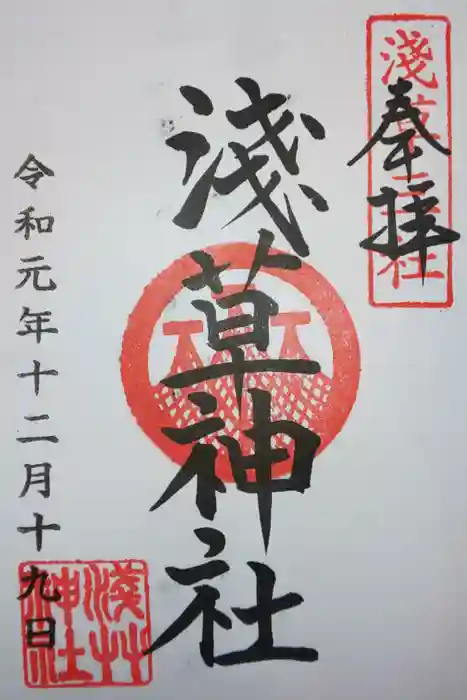 奉拝
淺草三社
淺草神社
令和元年十二月十九日
淺草神社